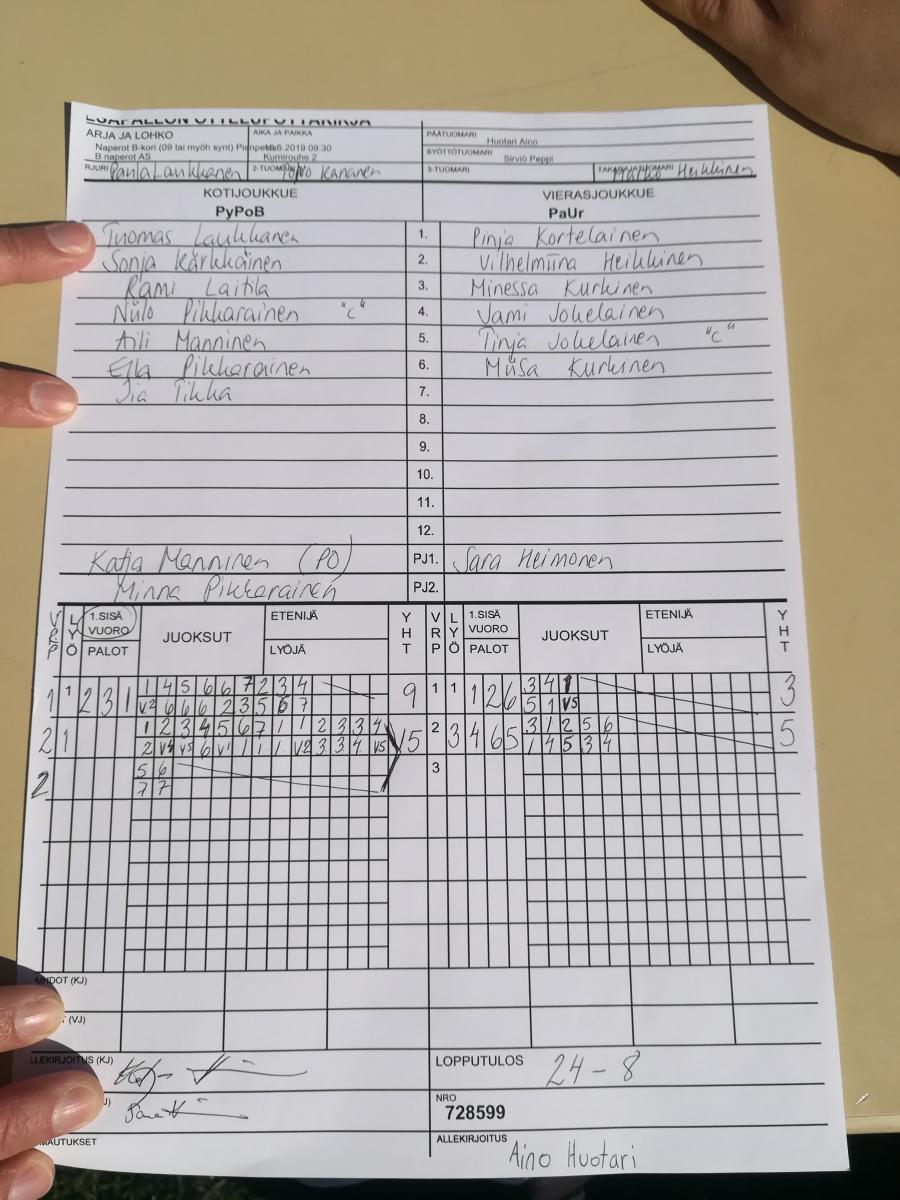 ARJA JA LOHKO
Naperot B-kori (09 tai myöh synt)
B naperot AS
AIKA JA PAIKKA
.6.2019 09:30
Kumirouhe 2
PÄÄTUOMARI
Huotari Aino
SYÖTTÖTUOMARI
Sirviö Peppi
RJURI Paula Laukkanen
Kananen
3-TUOMARI
Heikkinen
KOTIJOUKKUE
PyPoB
VIERASJOUKKUE
PaUr
Tuomas Laukkanen 1. Pinja Kortelainen
Sonja Kärkkäinen 2. Vilhelmiina Heikkinen
Rami Laitila 3. Minessa Kurkinen
Niilo Pikkarainen "c" 4. Jami Jokelainen
Aili Manninen 5. Tinja Jokelainen "c"
Ella Pikkarainen 6. Miisa Kurkinen
Iia Tikka 7.
8.
9.
10.
11.
12.
Katja Manninen (PO) PJ1. Sara Heimonen
Minna Pikkarainen PJ2.
VRP LYÖ 1.SISÄ VUORO PALOT JUOKSUT ETENIJÄ LYÖJÄ YHT VRP LYÖ 1.SISÄ VUORO PALOT JUOKSUT ETENIJÄ LYÖJÄ YHT
1 1 2 3 1 1 4 5 6 6 7 2 3 4 9 1 1 1 2 6 3 4 1 3
V2 6 6 6 2 3 5 6 7 5 1 V5
2 1 1 2 3 4 5 6 7 1 1 2 3 3 4 15 2 3 4 6 5 3 1 2 5 6 5
2 V4 V5 6 V1 1 1 1 V2 3 3 4 V5 1 4 5 3 4
2 5 6 3
7 7
IHDOT (KJ)
(VJ)
LLEKIRJOITUS (KJ)
LOPPUTULOS 24-8
NRO
728599
MAUTUKSET
ALLEKIRJOITUS
Aino Huotari